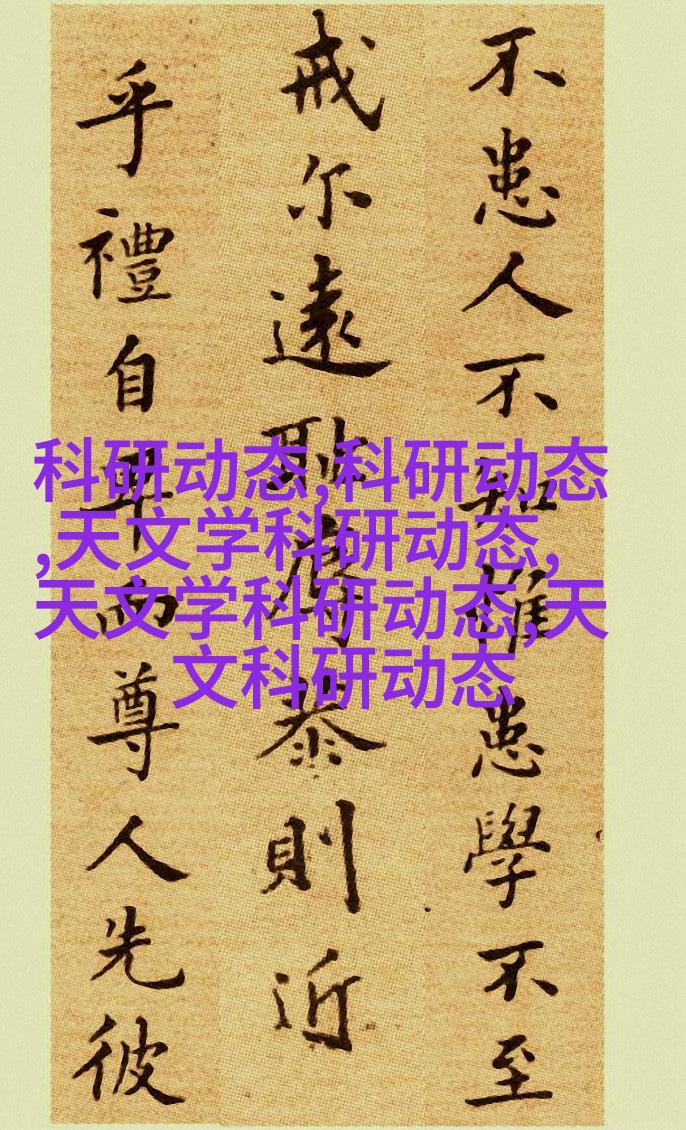 不患人不知惟患學不至
戒尔遠耻辱恭則近
乎禮自卑而尊人先彼
科研动态,科研动态
,天文学科研动态,
天文学科研动态,天
文科研动态